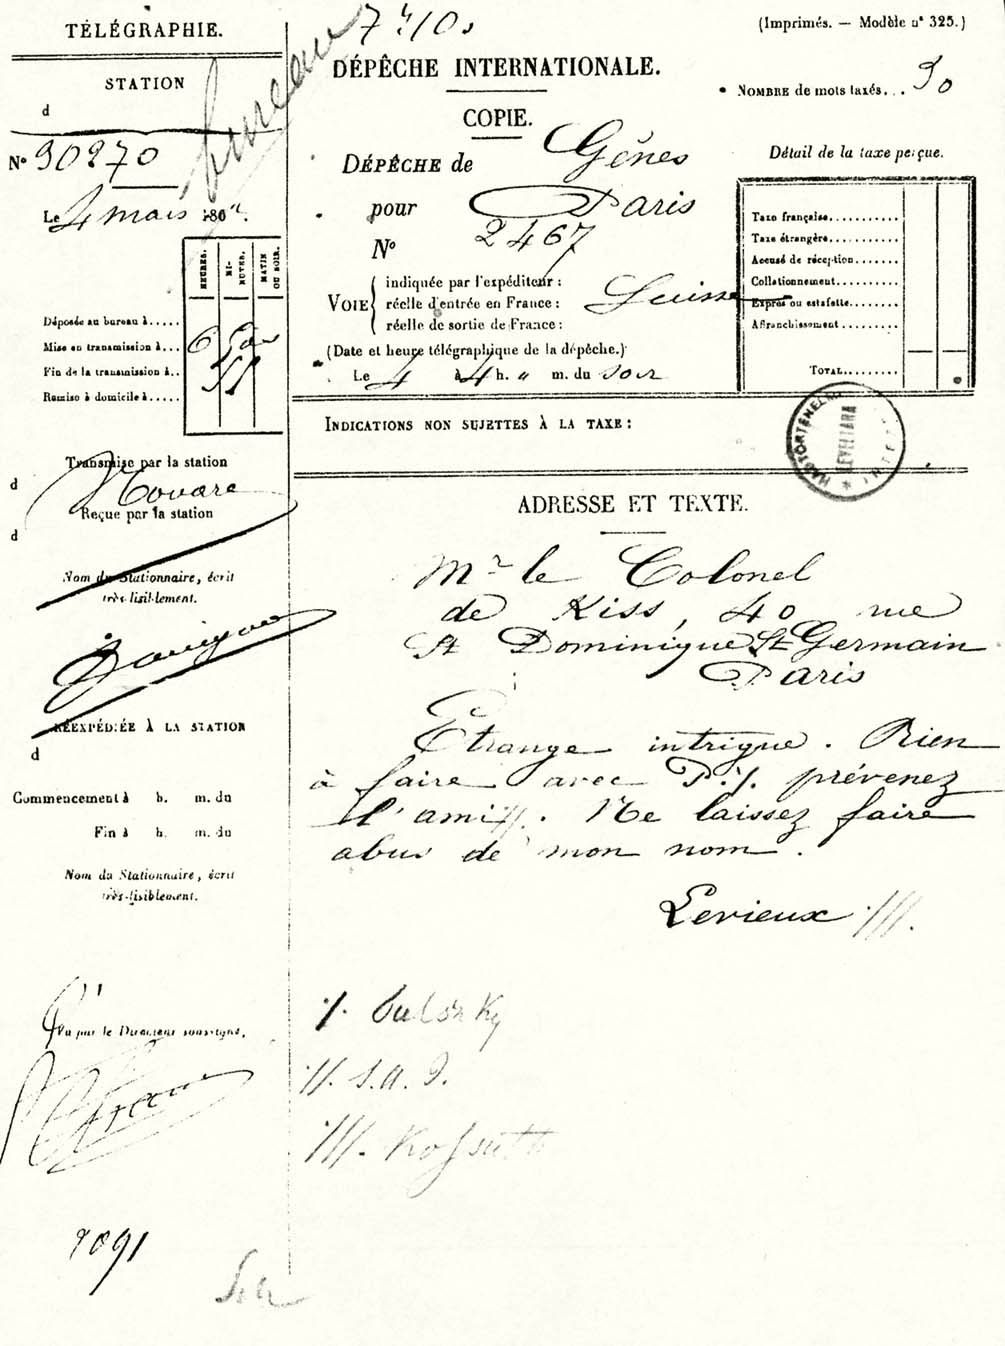 TÉLÉGRAPHIE.
STATION
d
N° 30270
Le 4 mars 186
HEURES.
MI-NUTES.
MATIN OU SOIR.
Déposée au bureau à.....
Mise en transmission à... 6
Fin de la transmission à..
Remise à domicile à.....
Transmise par la station
d Novare
Reçue par la station
d
Nom du Stationnaire, écrit
très lisiblement.
RÉEXPÉDIÉE À LA STATION
d
Commencement à h. m. du
Fin à h. m. du
Nom du Stationnaire, écrit
très-lisiblement.
Vu par le Directeur soussigné,
7 h 10 s
(Imprimés. — Modèle n° 325.)
DÉPÊCHE INTERNATIONALE.
NOMBRE de mots taxés... 30
COPIE.
DÉPÊCHE de Gênes
pour Paris
N° 2467
VOIE
indiquée par l'expéditeur :
réelle d'entrée en France : Suisse
réelle de sortie de France :
(Date et heure télégraphique de la dépêche.)
Le 4 à 4 h. " m. du soir
Détail de la taxe perçue.
Taxe française...........
Taxe étrangère...........
Accusé de réception.......
Collationnement...........
Exprès ou estafette........
Affranchissement.........
TOTAL........
INDICATIONS NON SUJETTES À LA TAXE :
ADRESSE ET TEXTE.
Mr le Colonel
de Kiss, 40 rue
St Dominique St Germain
Paris
Étrange intrigue. Rien
à faire avec P./. prévenez
l'ami//. Ne laissez faire
abus de mon nom.
Levieux ///.
/.
//. S.A.I.
///. Kossuth